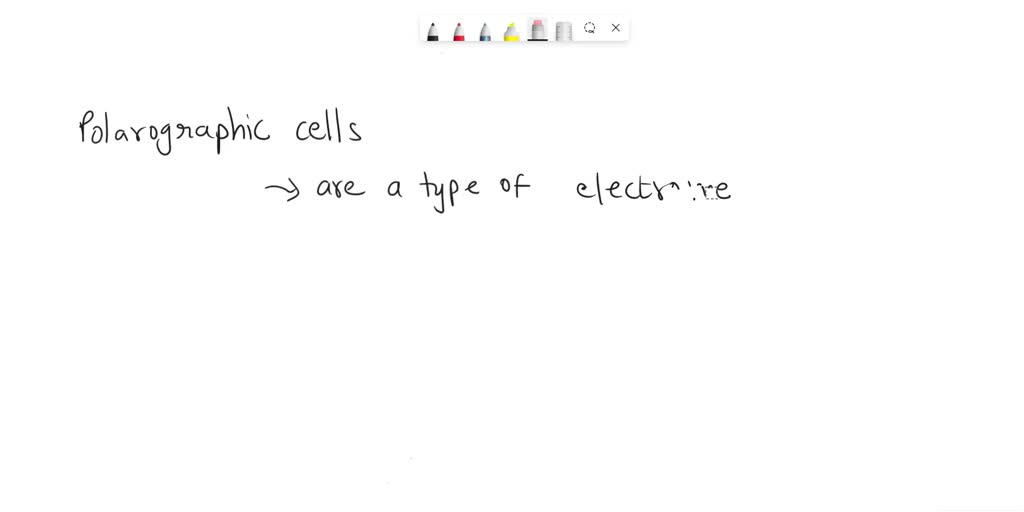 Polarographic cells
→ are a type of